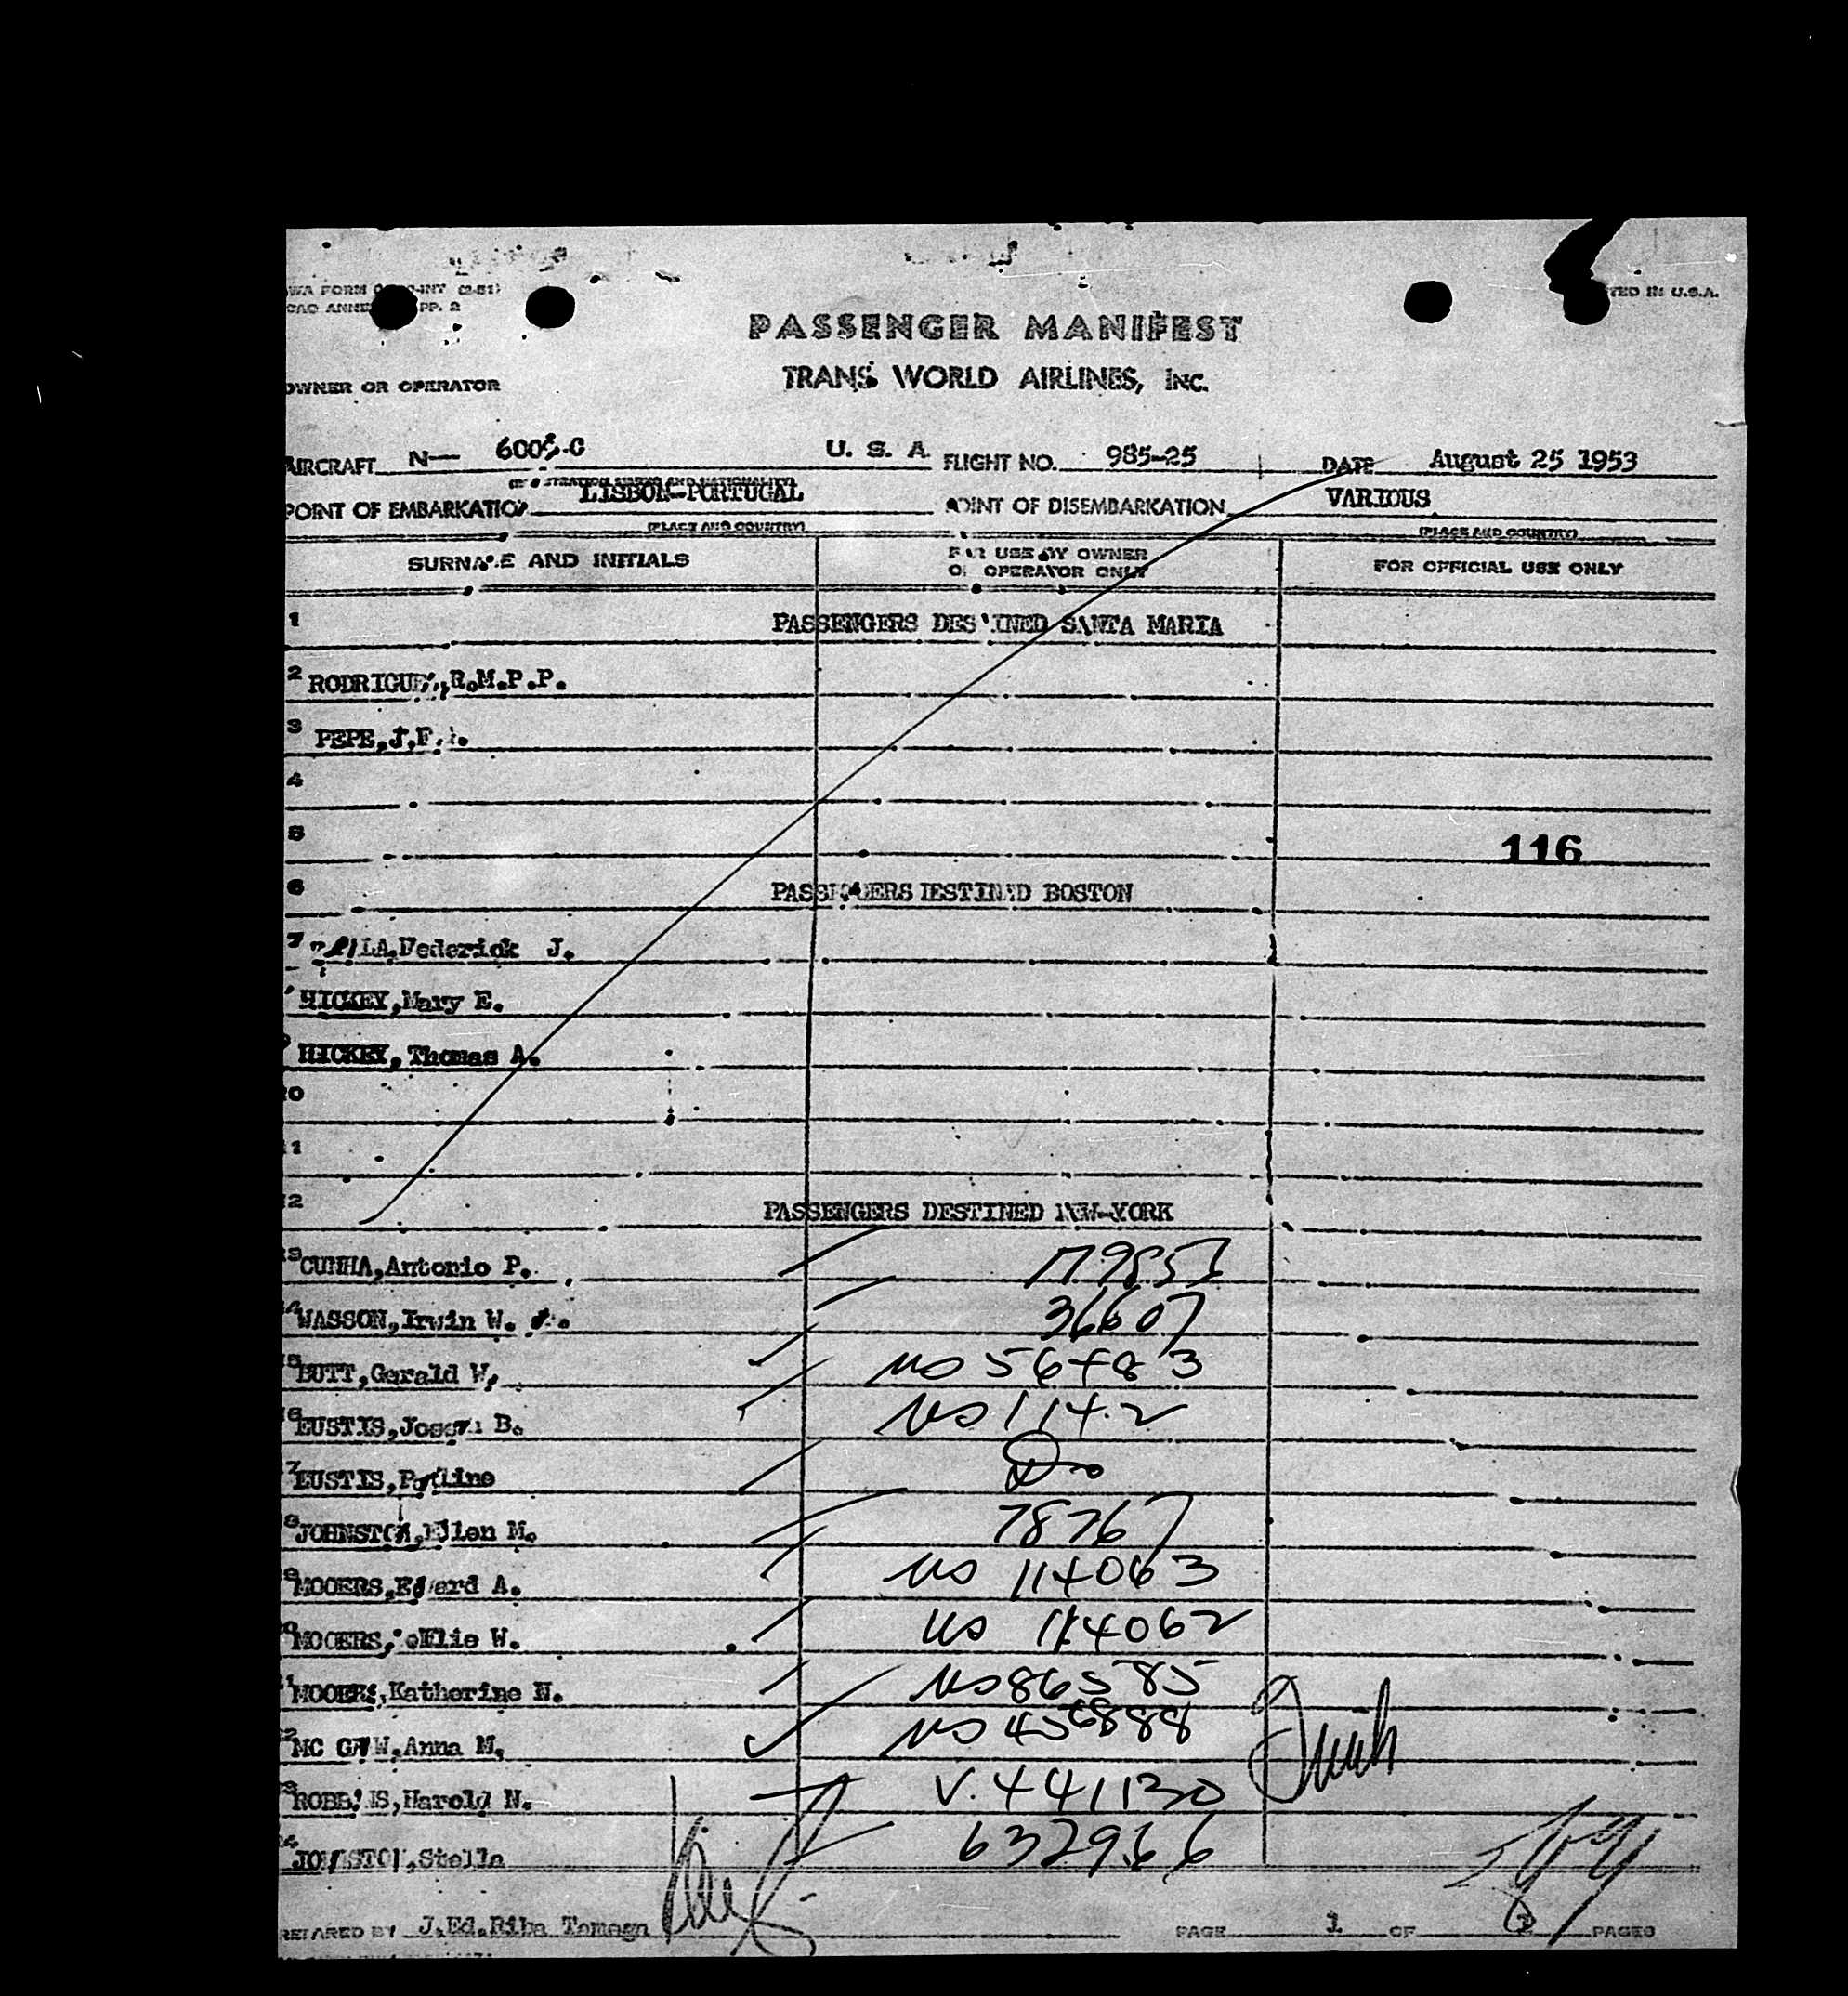 PASSENGER MANIFEST
TRANS WORLD AIRLINES, INC.
OWNER OR OPERATOR
AIRCRAFT N— U. S. A. FLIGHT NO. 985-25 DATE August 25 1953
POINT OF EMBARKATION LISBON-PORTUGAL POINT OF DISEMBARKATION VARIOUS
(PLACE AND COUNTRY) (PLACE AND COUNTRY)
SURNAME AND INITIALS FOR USE BY OWNER OR OPERATOR ONLY FOR OFFICIAL USE ONLY
1 PASSENGERS DESTINED SANTA MARIA
2 R.M.P.P.
3 PEPE,J.F.
4
5 116
6 PASSENGERS DESTINED BOSTON
7 Federick J.
HICKEY,Mary E.
HICKEY, Thomas A.
10
11
12 PASSENGERS DESTINED NEW-YORK
13 CUNHA,Antonio P.
14 WASSON,Irwin W. 36607
15 BUTT,Gerald W.
16 EUSTIS,Joseph B.
17 EUSTIS,Pauline Do
18 JOHNSTON,Ellen M. 78767
19 MOOERS,Edward A. US 114063
20 MOOERS, W. US 114062
21 MOOERS,Katherine N. US 86585
22 MC GAW,Anna M. US 456888
23 ROBBINS,Harold N. V.441130
24 JOHNSTON,Stella 632966
PREPARED BY J.Ed.Riba Tamega PAGE 1 OF PAGES